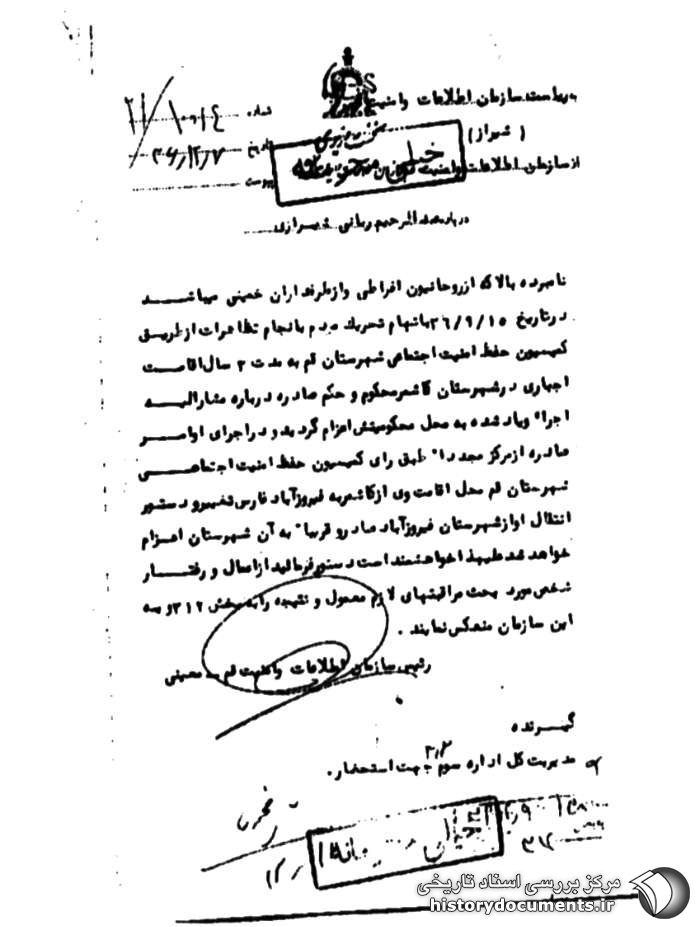 به ریاست سازمان اطلاعات و امنیت
( شیراز )
شماره ۲۱/۱۰۰۱۴
تاریخ ۳۶/۱۲/۷
پیوست
از سازمان اطلاعات و امنیت قم
خیلی محرمانه
درباره عبدالرحیم ربانی شیرازی
نامبرده بالا که از روحانیون افراطی و از طرفداران خمینی میباشد
در تاریخ ۳۶/۹/۱۵ باتهام تحریک مردم بانجام تظاهرات از طریق
کمیسیون حفظ امنیت اجتماعی شهرستان قم به مدت ۳ سال اقامت
اجباری در شهرستان کاشمر محکوم و حکم صادره درباره مشارالیه
اجرا" و یاد شده به محل محکومیتش اعزام گردید و در اجرای اوامر
صادره از مرکز مجددا" طبق رای کمیسیون حفظ امنیت اجتماعی
شهرستان قم محل اقامت وی از کاشمر به فیروزآباد فارس تغییر و دستور
انتقال او از شهرستان فیروزآباد صادر و قریبا" به آن شهرستان اعزام
خواهد شد علیهذا خواهشمند است دستور فرمائید از اعمال و رفتار
شخص مورد بحث مراقبتهای لازم معمول و نتیجه را به بخش ۳۱۲ و به
این سازمان منعکس نمایند .
رئیس سازمان اطلاعات و امنیت قم - معینی
گیرنده
مدیریت کل اداره سوم ۳۱۲ جهت استحضار .
خیلی محرمانه
۳۱۲
مرکز بررسی اسناد تاریخی
historydocuments.ir